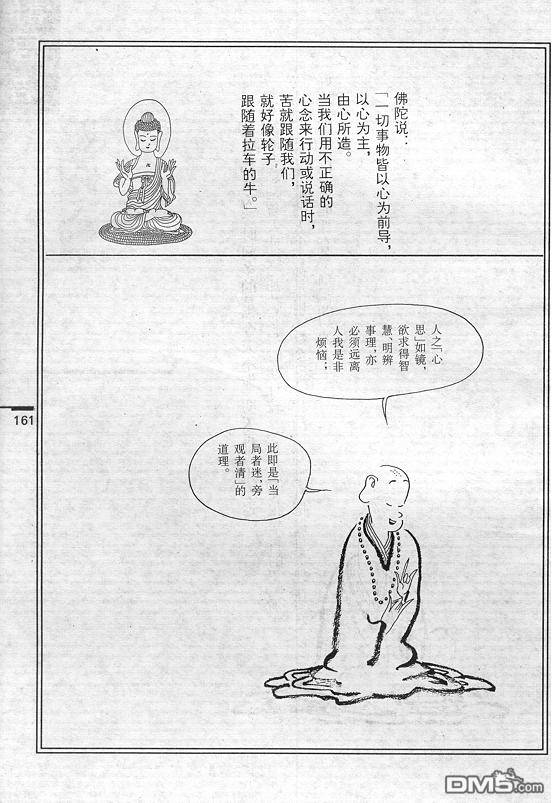 佛陀说：
「一切事物皆以心为前导，
以心为主，
由心所造。
当我们用不正确的
心念来行动或说话时，
苦就跟随我们，
就好像轮子
跟随着拉车的牛。」
人之「心
思」如镜，
欲求得智
慧、明辨
事理，亦
必须远离
人我是非
烦恼；
此即是「当
局者迷，旁
观者清」的
道理。
161
DM5.com